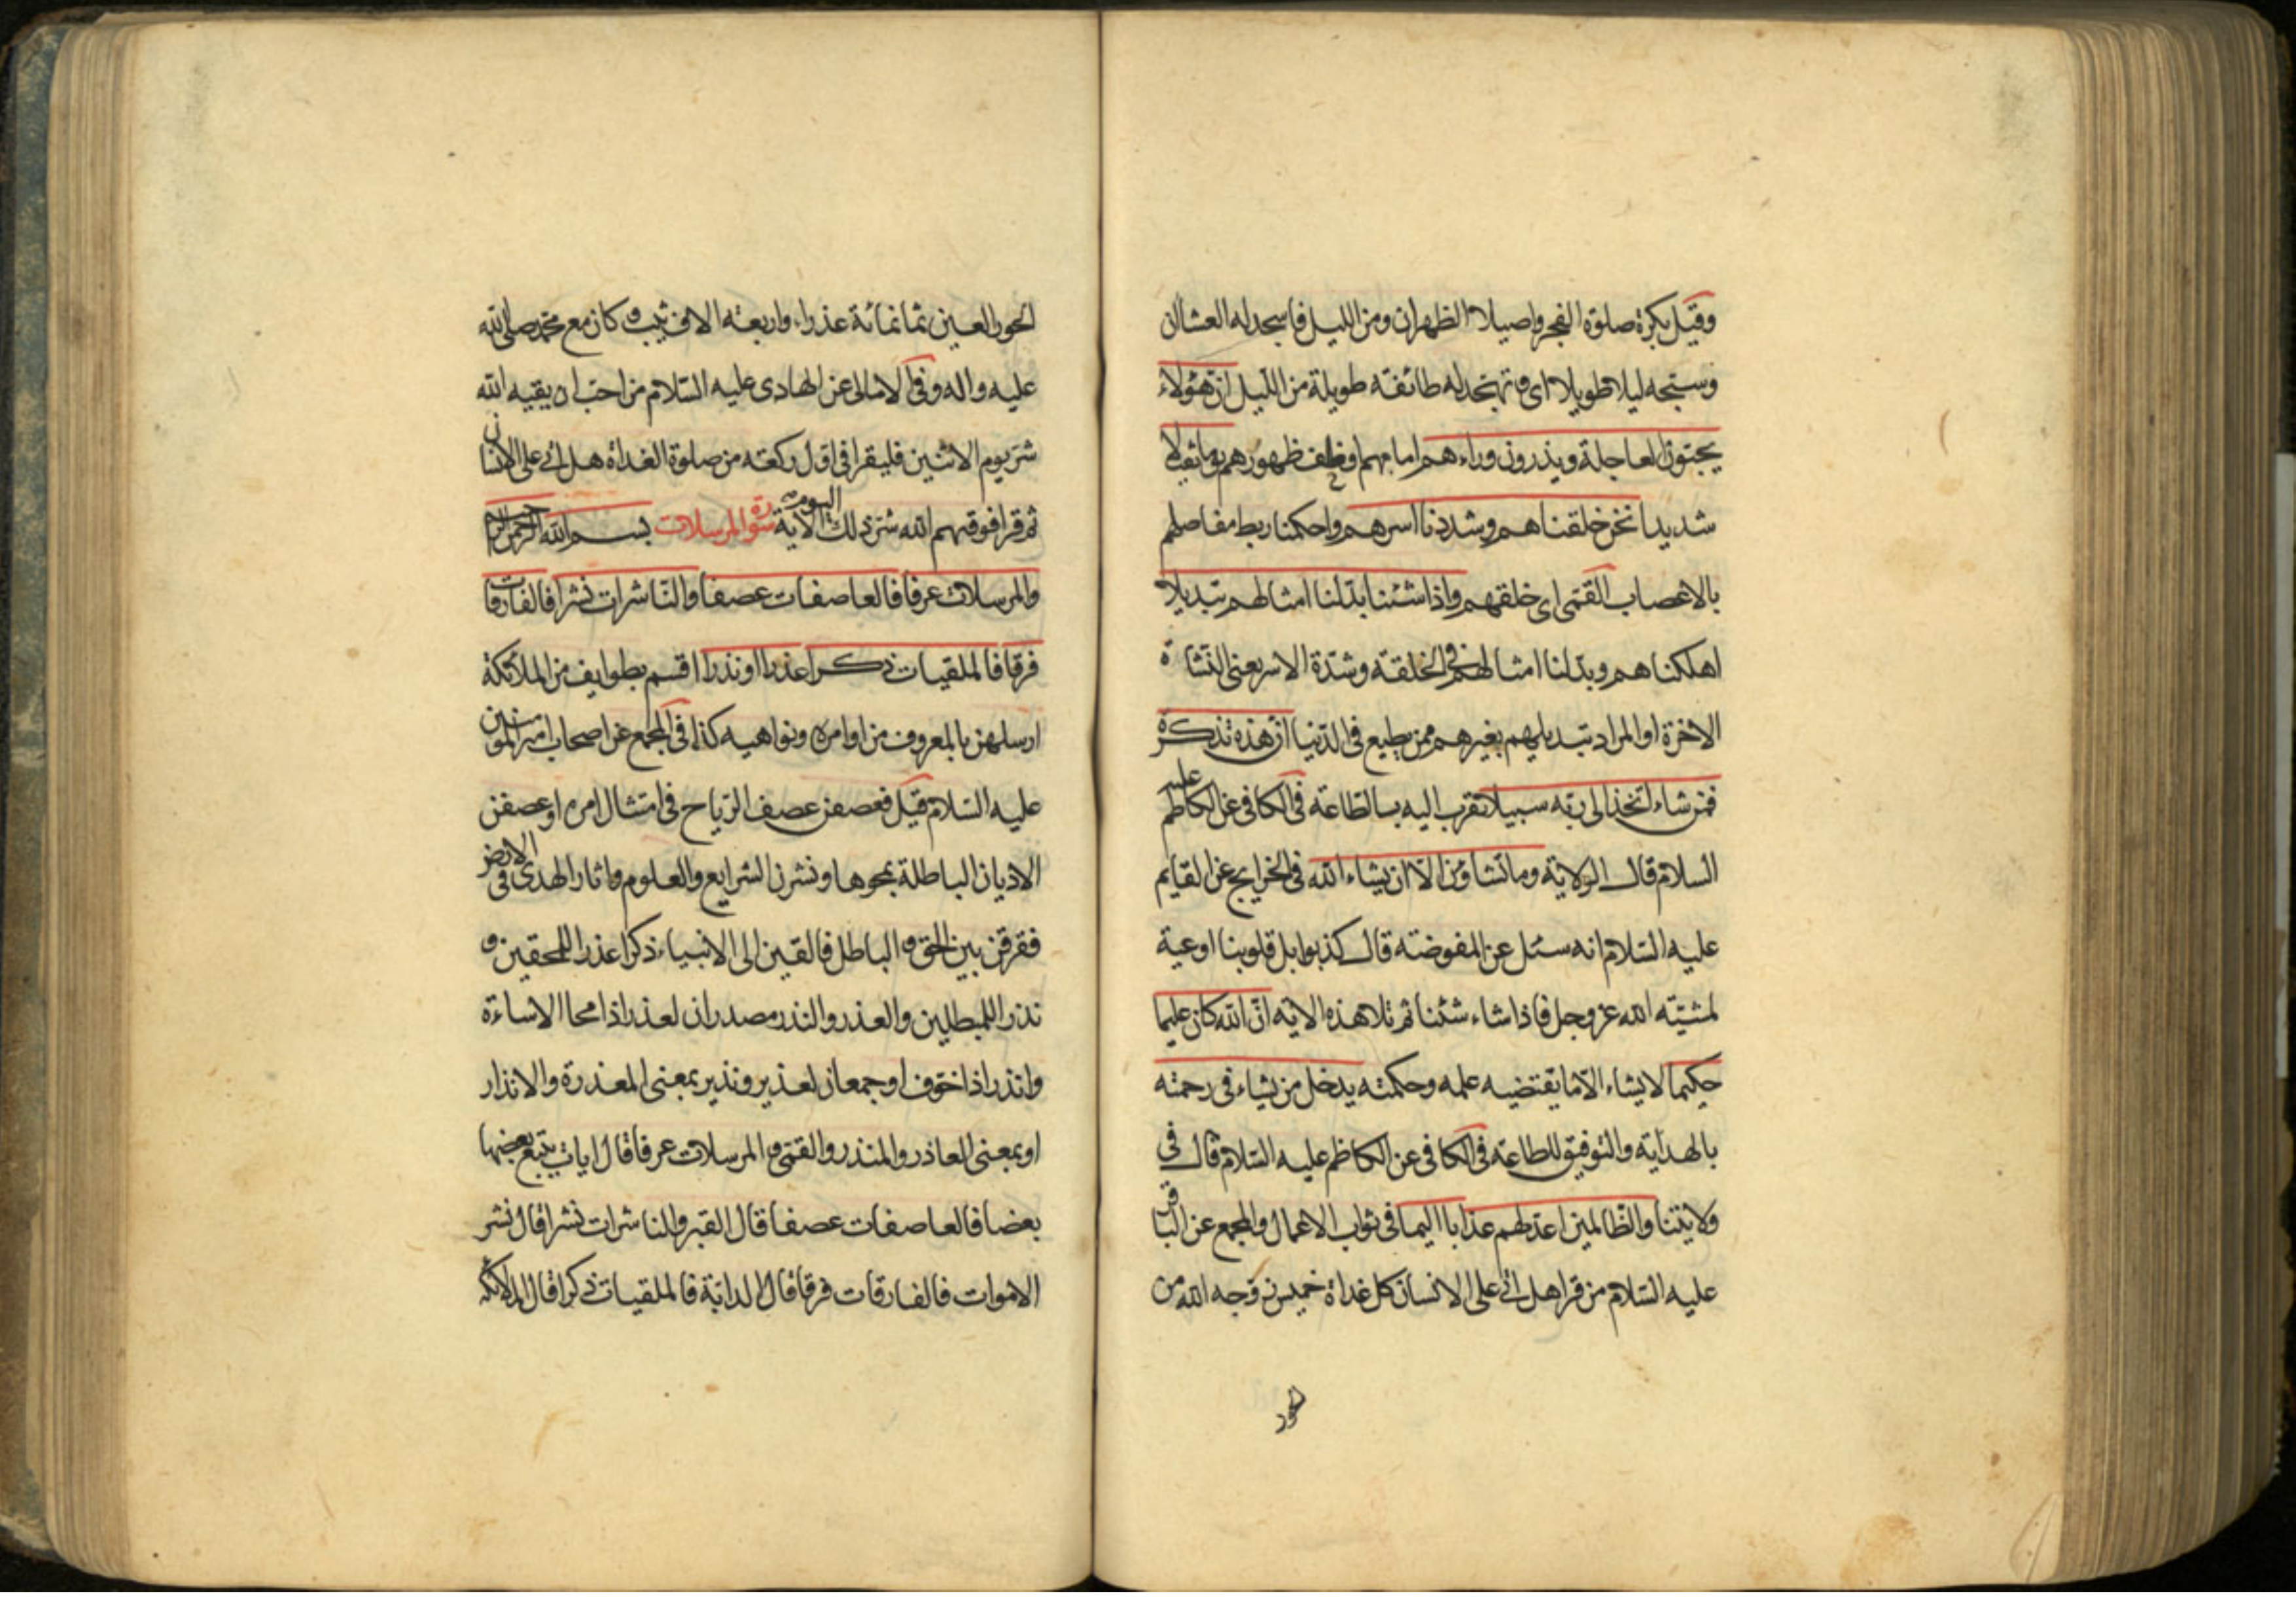 وقيل بكرة صلوة الفجر واصيلا الظهران ومن الليل فاسجد له العشاان
وسبحه ليلا طويلا اى وتهجد له طائفة طويلة من الليل ان هؤلاء
يحبون العاجلة ويذرون وراءهم امامهم او خلف ظهورهم يوما ثقيلا
شديدا نحن خلقناهم وشددنا اسرهم واحكمنا ربط مفاصلهم
بالاعصاب القمى اى خلقهم واذا شئنا بدلنا امثالهم تبديلا
اهلكناهم وبدلنا امثالهم فى الخلقة وشدة الاسر يعنى النشاة
الاخرة او المراد تبديلهم بغيرهم ممن يطيع فى الدنيا ان هذه تذكرة
فمن شاء اتخذ الى ربه سبيلا تقرب اليه بالطاعة فى الكافى عن الكاظم عليه
السلام قال الولاية وما تشاؤن الا ان يشاء الله فى الخرايج عن القايم
عليه السلام انه سئل عن المفوضة قال كذبوا بل قلوبنا اوعية
لمشية الله عز وجل فاذا شاء شئنا ثم تلا هذه الاية ان الله كان عليما
حكيما لا يشاء الا ما يقتضيه علمه وحكمته يدخل من يشاء فى رحمته
بالهداية والتوفيق للطاعة فى الكافى عن الكاظم عليه السلام قال فى
ولايتنا والظالمين اعد لهم عذابا اليما فى ثواب الاعمال والمجمع عن الباقر
عليه السلام من قرا هل اتى على الانسان كل غداة خميس زوجه الله من
الحور
الحور العين ثمانمائة عذراء واربعة الاف ثيب وكان مع محمد صلى الله
عليه واله وفى الامالى عن الهادى عليه السلام من احب ان يقيه الله
شر يوم الاثنين فليقرا فى اول ركعة من صلوة الغداة هل اتى على الانسان
ثم قرا فوقيهم الله شر ذلك اليوم الاية سورة والمرسلات بسم الله الرحمن الرحيم
والمرسلات عرفا فالعاصفات عصفا والناشرات نشرا فالفارقات
فرقا فالملقيات ذكرا عذرا او نذرا اقسم بطوايف من الملائكة
ارسلهن بالمعروف من اوامره ونواهيه كذا فى المجمع عن اصحاب امير المؤمنين
عليه السلام قيل فعصفن عصف الرياح فى امتثال امره او عصفن
الاديان الباطلة بمحوها ونشرن الشرايع والعلوم واثار الهدى فى الارض
ففرقن بين الحق والباطل فالقين الى الانبياء ذكرا عذرا للمحقين و
نذرا للمبطلين والعذر والنذر مصدران لعذر اذا محا الاساءة
وانذر اذا خوف او جمعان لعذير ونذير بمعنى المعذرة والانذار
او بمعنى العاذر والمنذر والقمى والمرسلات عرفا قال ايات يتبع بعضها
بعضا فالعاصفات عصفا قال القبر والناشرات نشرا قال نشر
الاموات فالفارقات فرقا قال الدابة فالملقيات ذكرا قال الملائكة